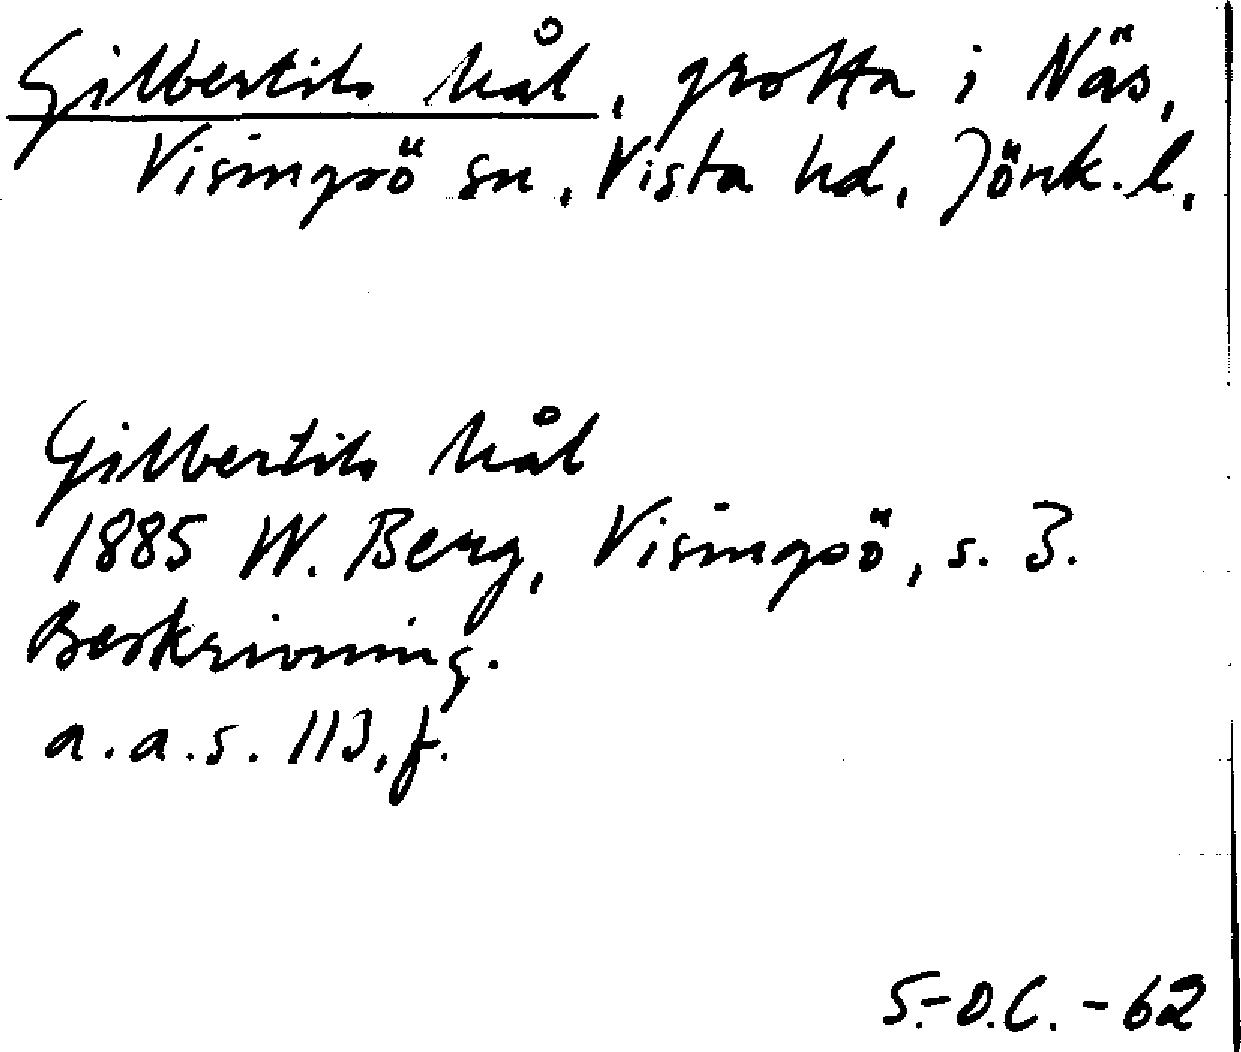 Gilbertils hål, grotta i Näs,
Visingsö sn, Vista hd, Jönk. l.
Gilbertils hål
1885 W. Berg, Visingsö, s. 3.
Beskrivning.
a.a.s. 113, f.
S.-O.C. -62